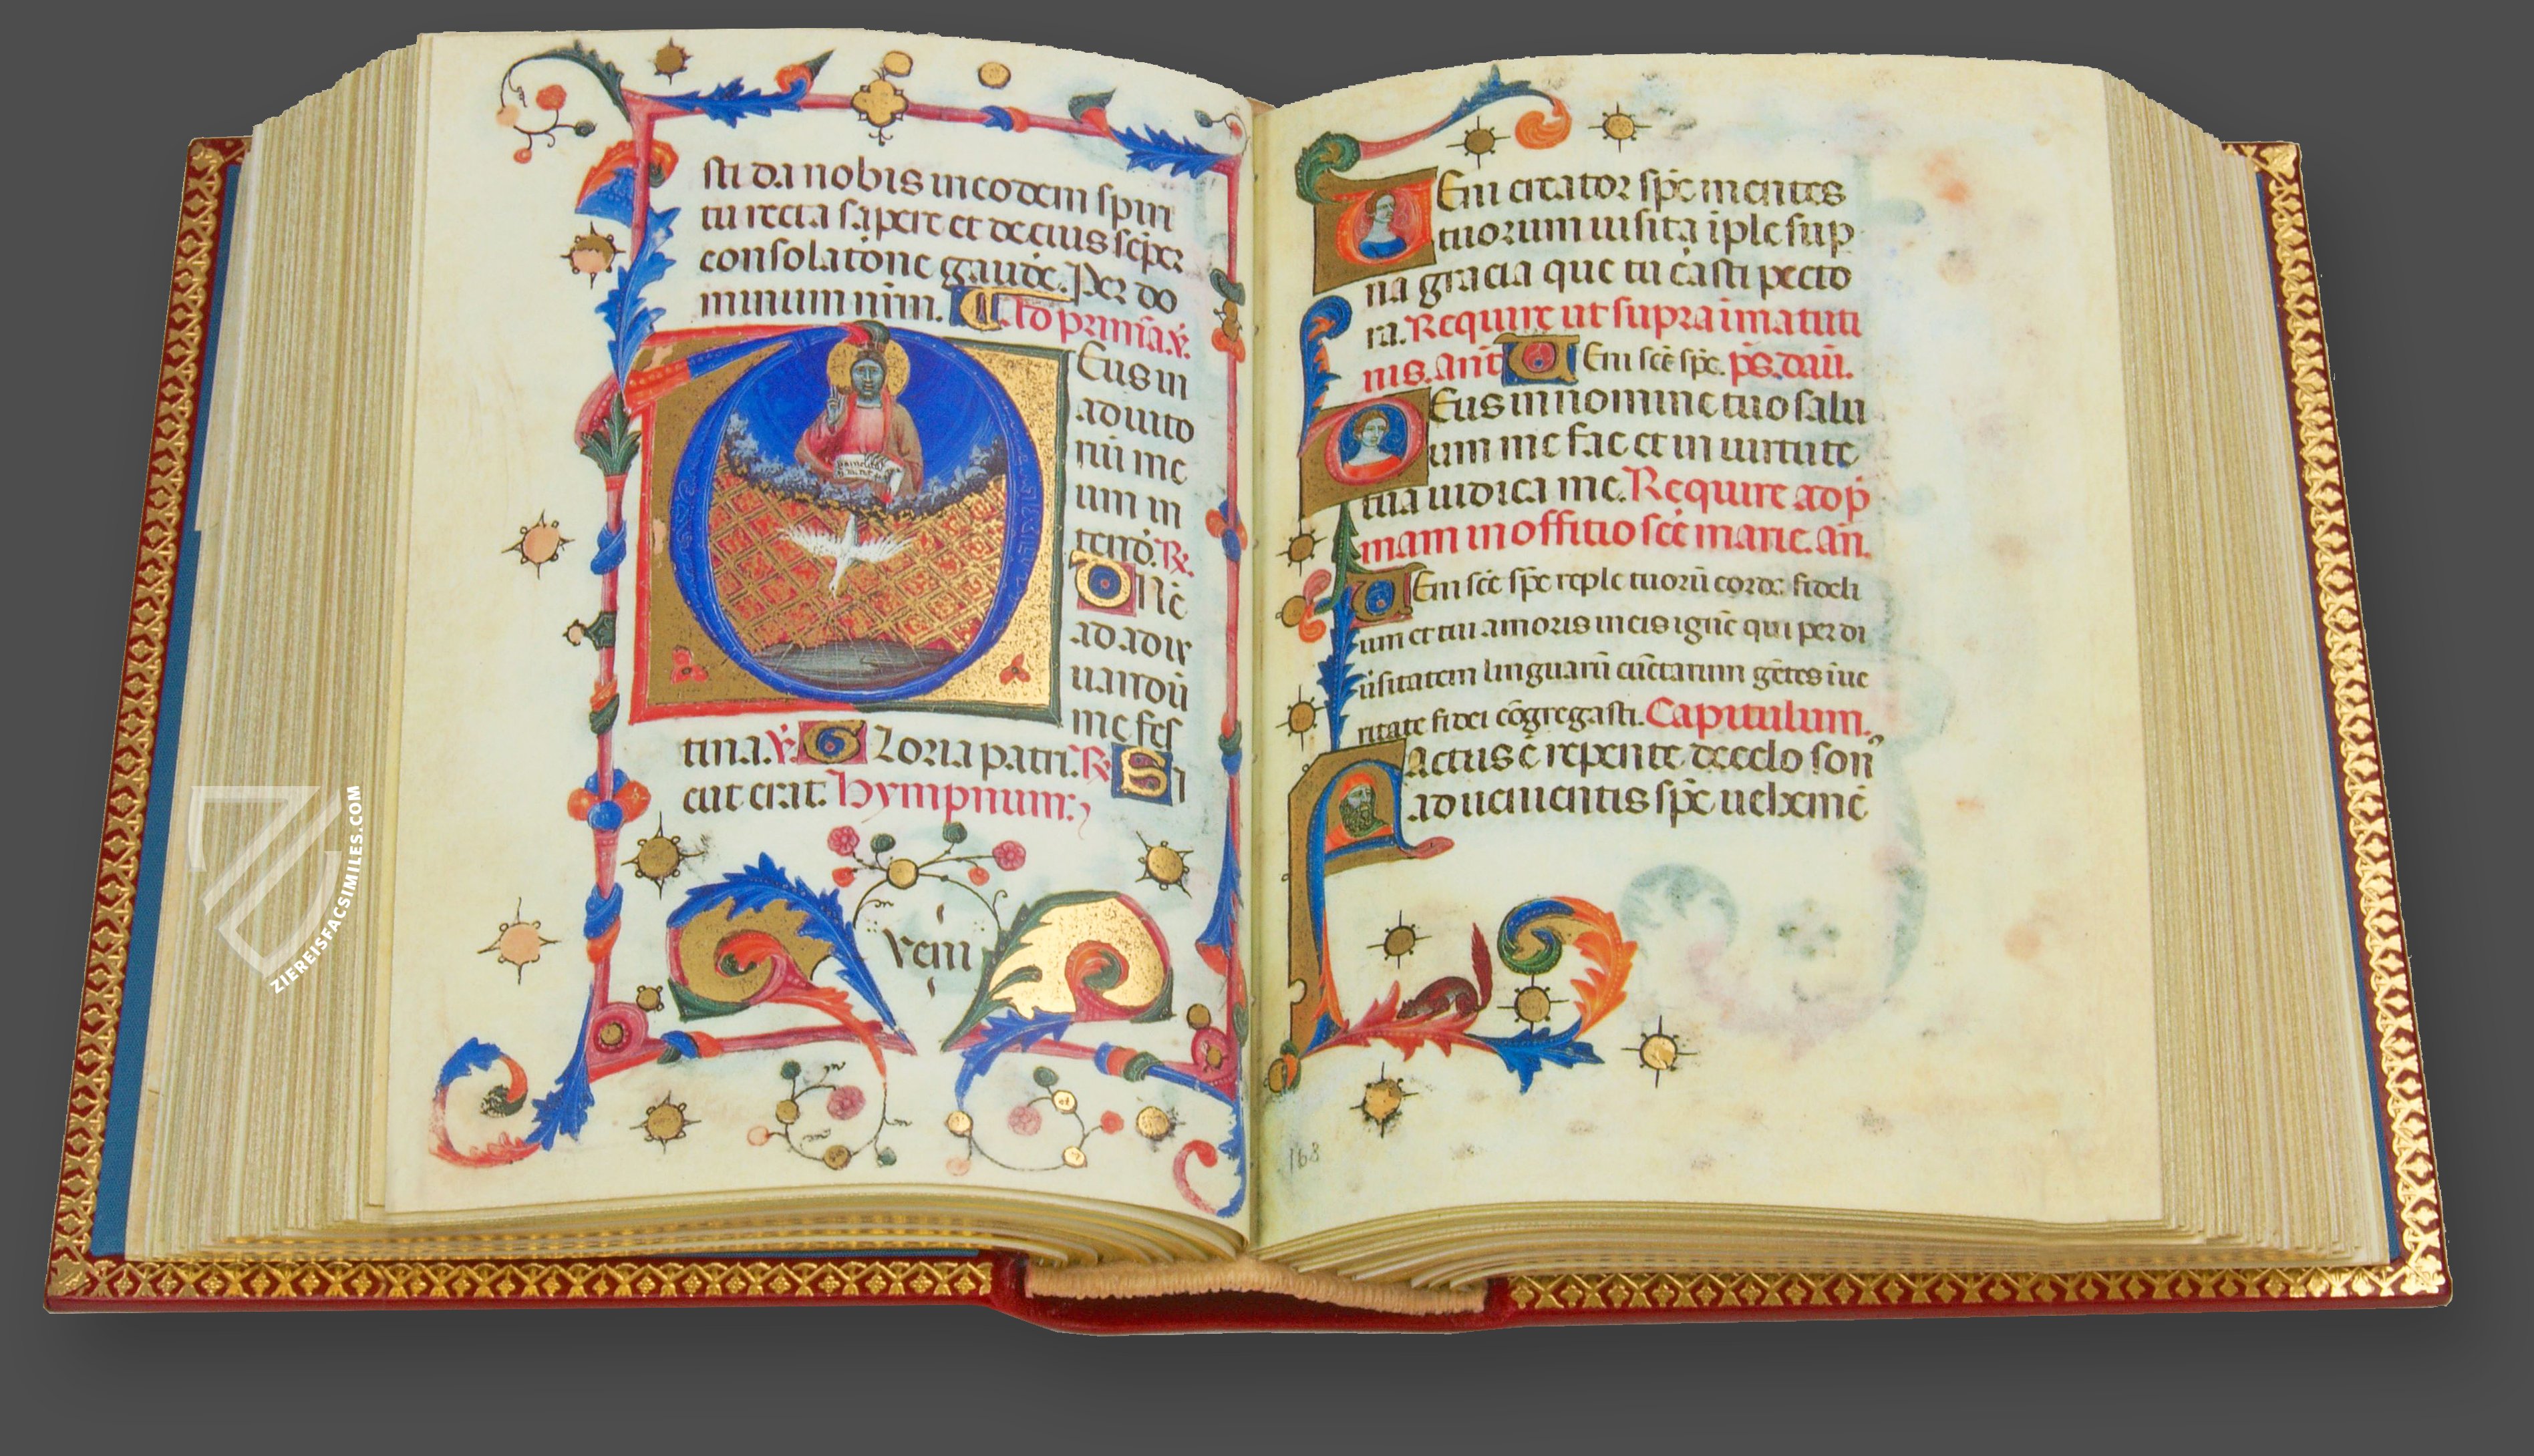 sti da nobis in eodem spiri
tu recta sapere et de eius sēper
consolatōne gaudē. Per do
minum nrm̄. Ad primā. ℣.
Deus in
adiuto
riū me
um in
tendē. ℟.
Dn̄e
ad adiu
uandū
me fes
tina. ℣. Gloria patri. ℟. Si
cut erat. hympnum.
veni
Veni creator sp̄c mentes
tuorum uisita īple sup
na gracia que tu c̄asti pecto
ra. Require ut supra i matuti
nis. Ant̄ Veni sc̄e sp̄c. p̄s. dauī.
Deus in nomine tuo saluu
um me fac et in uirtute
tua iudica me. Require ad p̄
mam in offitio sc̄e marie. an̄.
Veni sc̄e sp̄c reple tuorū corda fideli
um et tui amoris in eis ignē qui per di
ūsitatem linguarū cūctarum gētes in ūe
ritate fidei cōgregasti. Capitulum.
Factus ē repente de celo son᾿
aduenientis sp̄c uehemē
168
ZIEREISFACSIMILES.COM